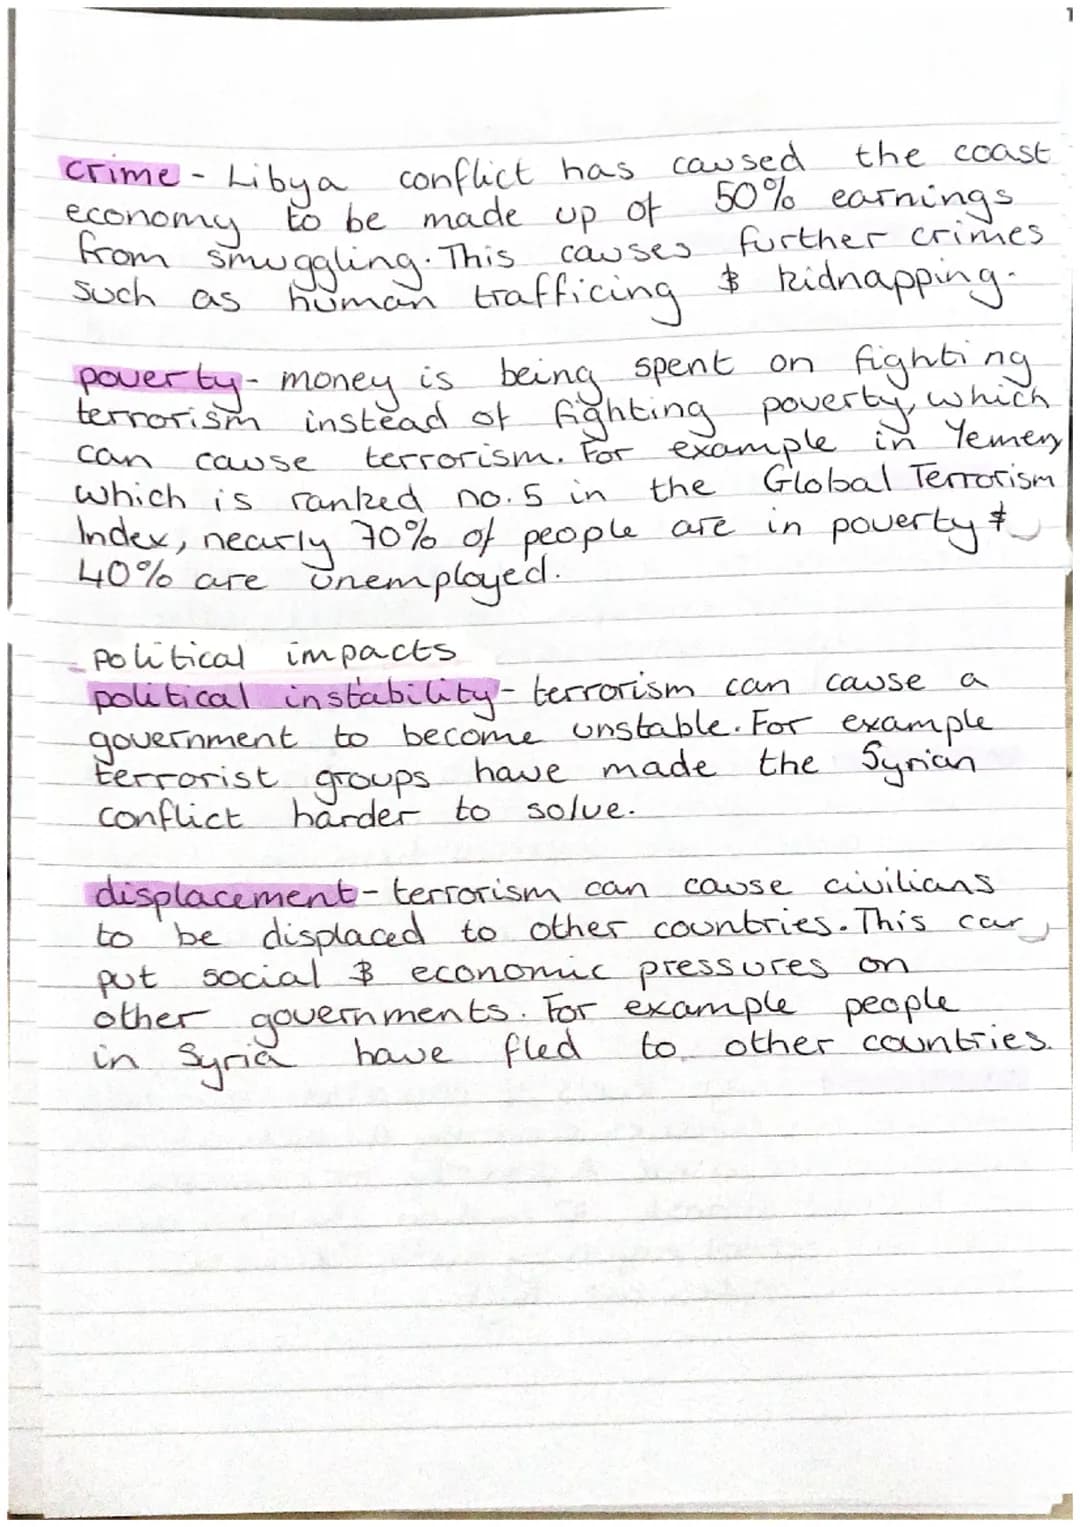 crime - Libya conflict has caused the coast
economy to be made up of 50% earnings
from smuggling. This causes further crimes
such as human trafficing & kidnapping.
poverty - money is being spent on fighting
terrorism instead of fighting poverty, which
can cause terrorism. For example in Yemen,
which is ranked no. 5 in the Global Terrorism
Index, nearly 70% of people are in poverty &
40% are unemployed.
Political impacts
political instability - terrorism can cause a
government to become unstable. For example
terrorist groups have made the Syrian
conflict harder to solve.
displacement - terrorism can cause civilians
to be displaced to other countries. This can
put social & economic pressures on
other governments. For example people
in Syria have fled to other countries.